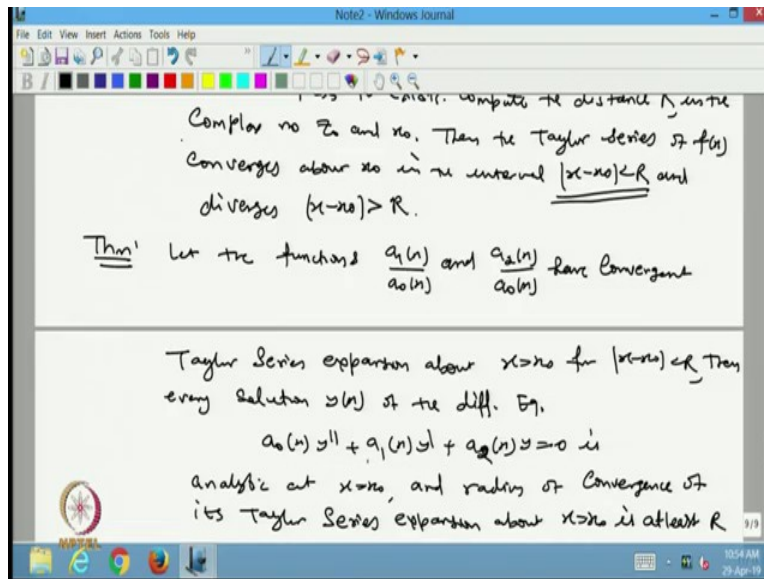 Note2 - Windows Journal
File Edit View Insert Actions Tools Help
B I
Compute the distance R, in the
Complex no z₀ and x₀. Then the Taylor Series of f(x)
Converges about x₀ in the interval |x-x₀|<R and
diverges |x-x₀|>R.
Thm' Let the functions a₁(x)/a₀(x) and a₂(x)/a₀(x) have Convergent
Taylor Series expansion about x=x₀ for |x-x₀|<R, Then
every Solution y(x) of the diff. Eq.
a₀(x)y'' + a₁(x)y' + a₂(x)y=0 is
analytic at x=x₀, and radius of Convergence of
its Taylor Series expansion about x=x₀ is atleast R
9/9
NPTEL
10:54 AM
29-Apr-19